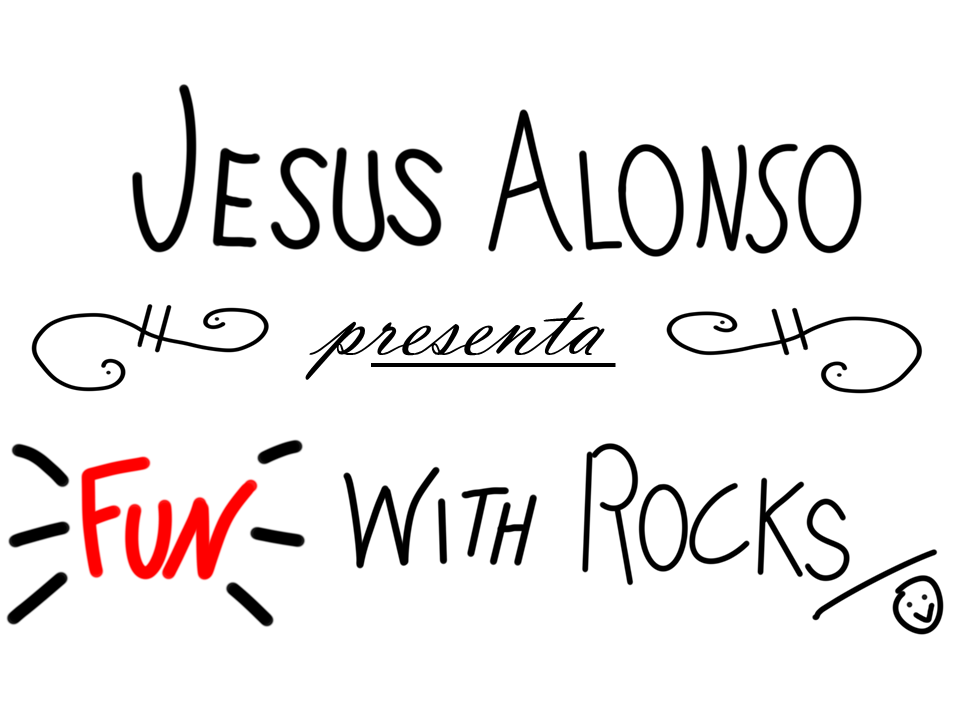 JESUS ALONSO
presenta
FUN WITH ROCKS